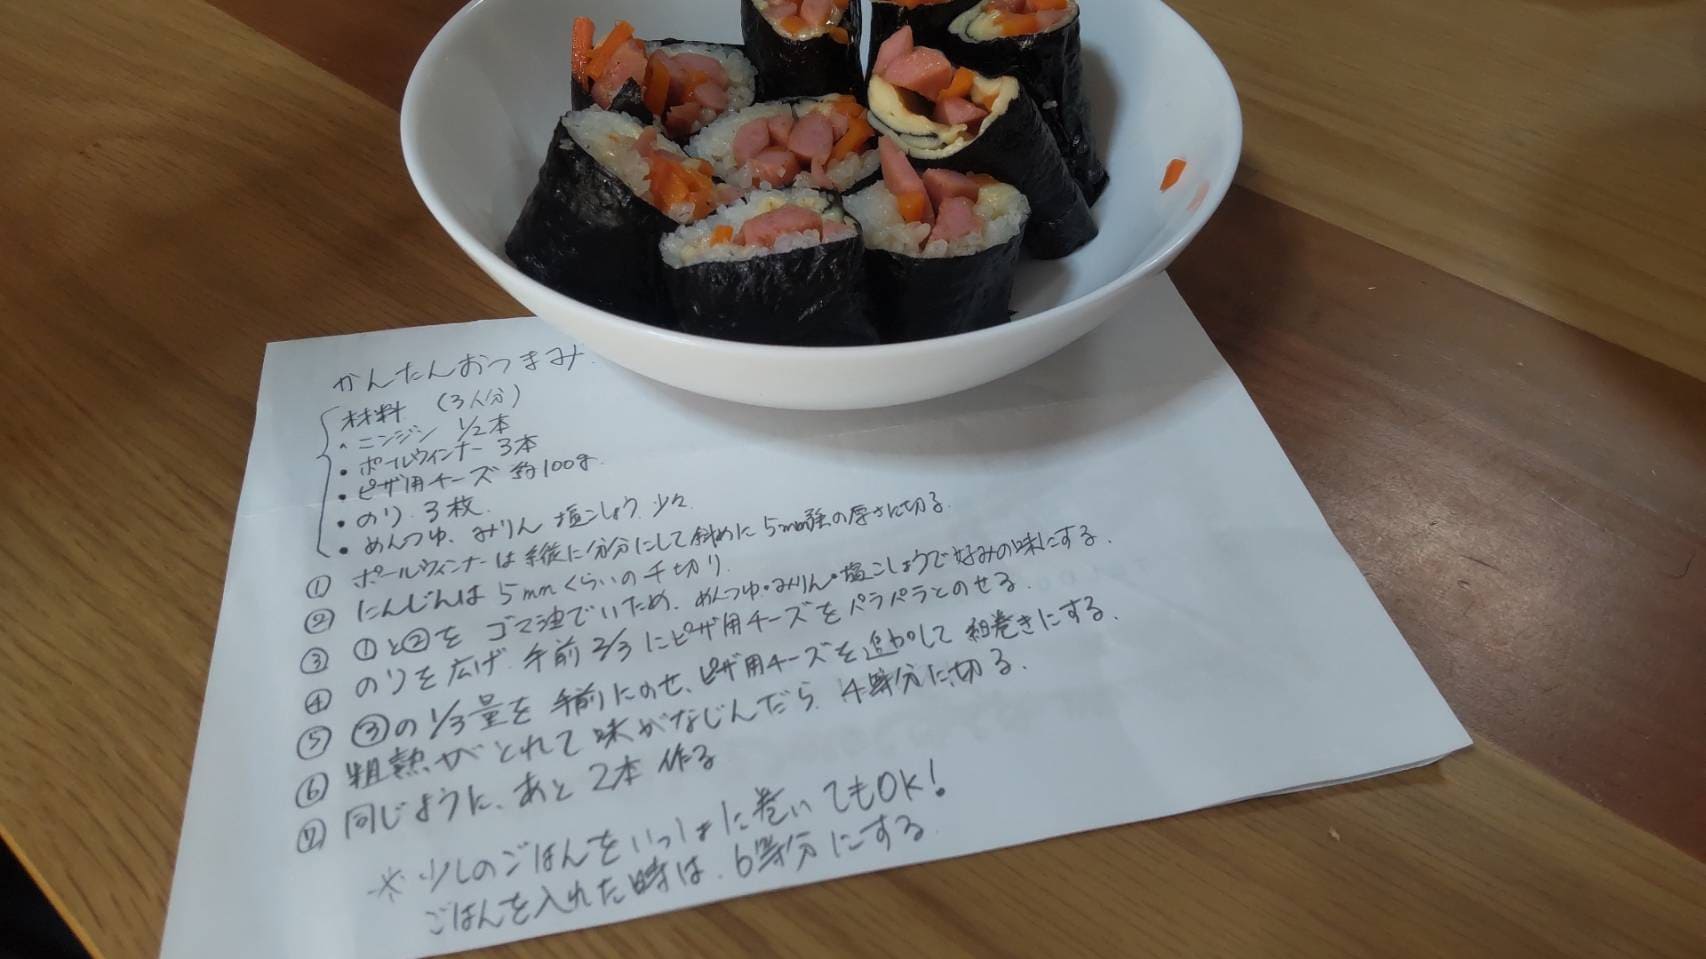 かんたんおつまみ
材料 (3人分)
・ニンジン 1/2本
・ポールウィンナー 3本
・ピザ用チーズ 約100g
・のり 3枚
・めんつゆ、みりん 塩こしょう 少々
① ポールウィンナーは縦に分にして斜めに5mm強の厚さに切る。
② にんじんは5mmくらいの千切り。
③ ①と②をゴマ油でいため、めんつゆ・みりん・塩こしょうで好みの味にする。
④ のりを広げ手前2/3にピザ用チーズをパラパラとのせる。
⑤ ③の1/3量を手前にのせ、ピザ用チーズを追加して細巻きにする。
⑥ 粗熱がとれて味がなじんだら 4等分に切る。
⑦ 同じように、あと2本作る
※ 少しのごはんをいっしょに巻いてもOK!
ごはんを入れた時は、6等分にする